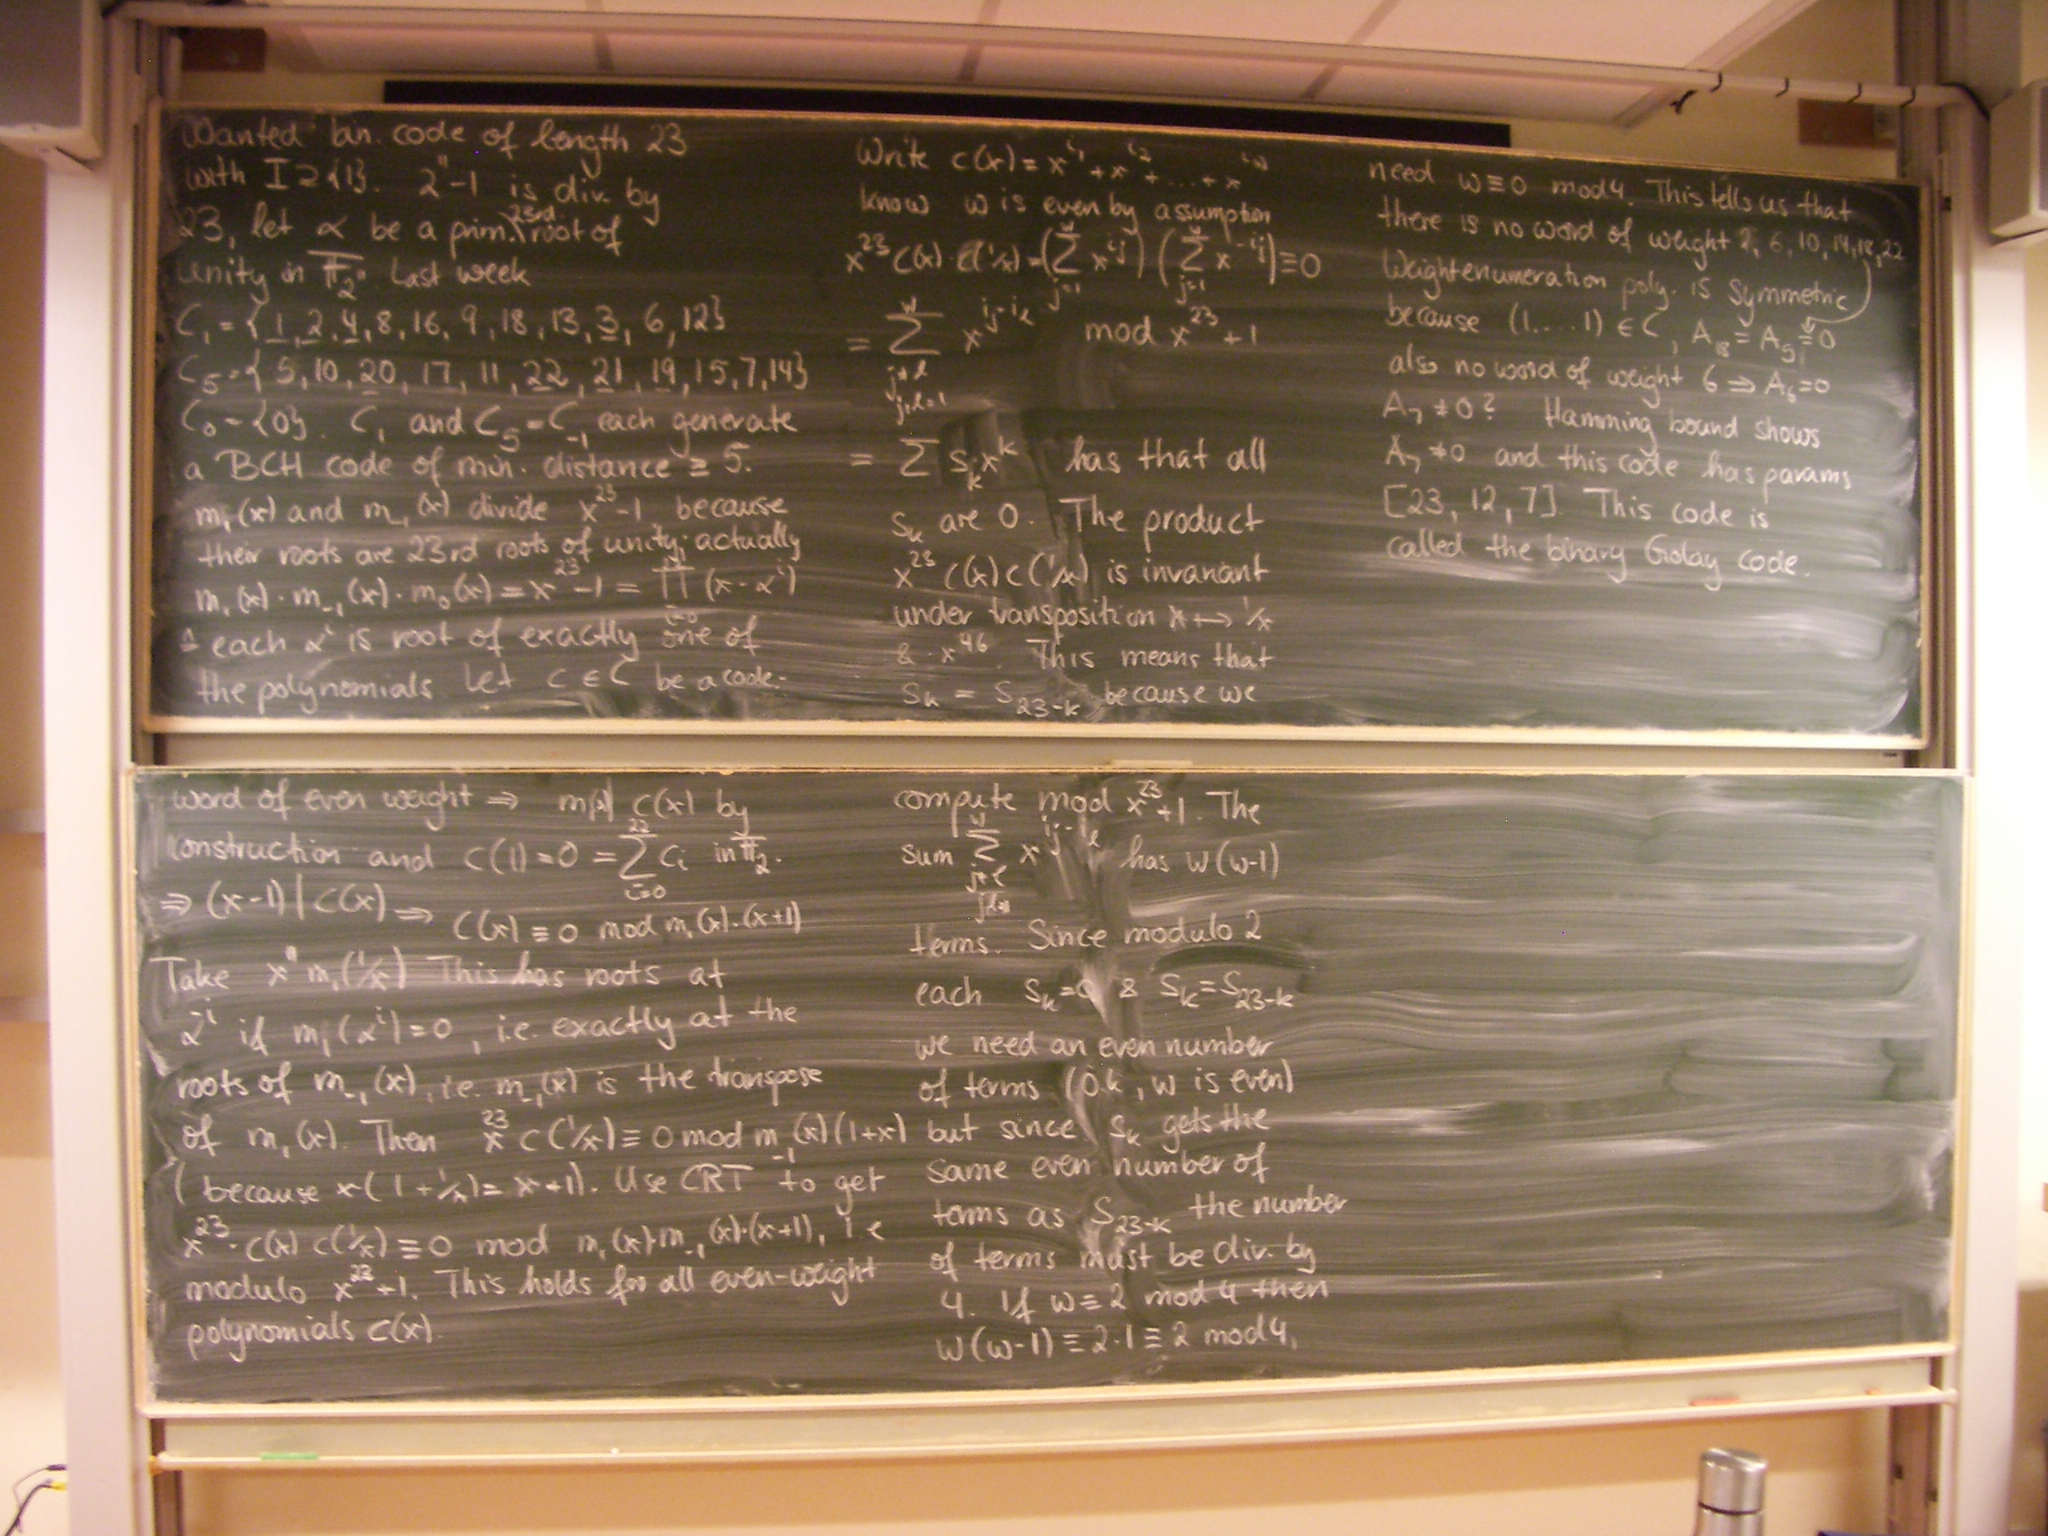 Wanted bin. code of length 23
with I ⊇ {1}. 2^11 - 1 is div. by
23, let α be a prim. 23rd root of
unity in F̅_2. Last week
C_1 = {1, 2, 4, 8, 16, 9, 18, 13, 3, 6, 12}
C_5 = {5, 10, 20, 17, 11, 22, 21, 19, 15, 7, 14}
C_0 = {0}. C_1 and C_5 = C_-1 each generate
a BCH code of min. distance ≥ 5.
m_1(x) and m_-1(x) divide x^23 - 1 because
their roots are 23rd roots of unity; actually
m_1(x) · m_-1(x) · m_0(x) = x^23 - 1 = ∏_{i=0}^{22} (x - α^i)
each α^i is root of exactly one of
the polynomials Let c ∈ C be a code-
word of even weight ⇒ m_1(x) | c(x) by
construction and c(1) = 0 = ∑_{i=0}^{22} c_i in F_2.
⇒ (x-1) | c(x) ⇒ c(x) ≡ 0 mod m_1(x)·(x+1)
Take x^11 m_1(1/x) This has roots at
α^-i if m_1(α^i) = 0, i.e. exactly at the
roots of m_-1(x), i.e. m_-1(x) is the transpose
of m_1(x). Then x^23 c(1/x) ≡ 0 mod m_-1(x)(1+x)
(because x(1+1/x) = x+1). Use CRT to get
x^23 · c(x) c(1/x) ≡ 0 mod m_1(x)·m_-1(x)·(x+1), i.e
modulo x^23 + 1. This holds for all even-weight
polynomials c(x).
Write c(x) = x^{i_1} + x^{i_2} + ... + x^{i_w}
know w is even by assumption
x^23 c(x) · c(1/x) = (∑_{j=1}^w x^{i_j}) (∑_{j=1}^w x^{-i_j}) ≡ 0
= ∑_{j≠l, j,l=1}^w x^{i_j - i_l} mod x^23 + 1
= ∑ s_k x^k has that all
s_k are 0. The product
x^23 c(x) c(1/x) is invariant
under transposition x ↔ 1/x
& · x^46. This means that
s_k = s_{23-k} because we
compute mod x^23 + 1. The
sum ∑_{j≠l, j,l=1}^w x^{i_j - i_l} has w(w-1)
terms. Since modulo 2
each s_k = 0 & s_k = s_{23-k}
we need an even number
of terms (ok, w is even)
but since s_k gets the
same even number of
terms as s_{23-k} the number
of terms must be div. by
4. If w ≡ 2 mod 4 then
w(w-1) ≡ 2·1 ≡ 2 mod 4,
need w ≡ 0 mod 4. This tells us that
there is no word of weight 2, 6, 10, 14, 18, 22
Weightenumeration poly. is symmetric
because (1....1) ∈ C, A_18 = A_5 = 0
also no word of weight 6 ⇒ A_6 = 0
A_7 ≠ 0? Hamming bound shows
A_7 ≠ 0 and this code has params
[23, 12, 7]. This code is
called the binary Golay code.